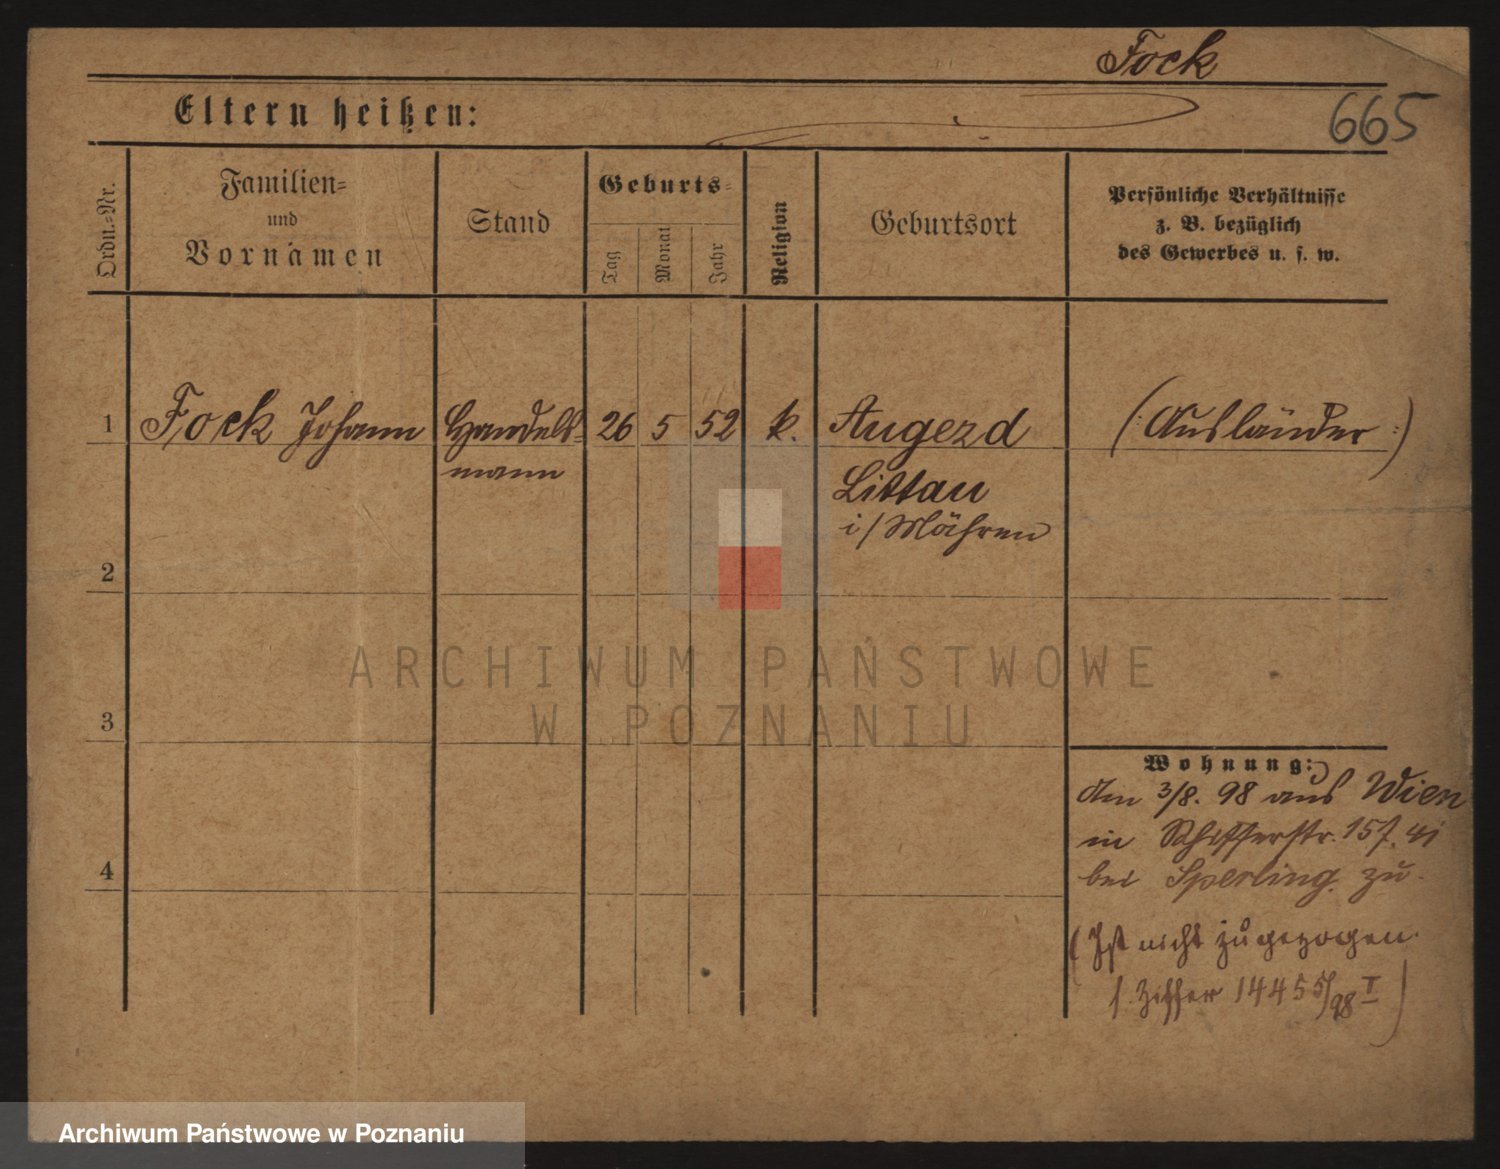 Fock
665
Eltern heißen:
Ordn.-Nr.
Familien-
und
Vornamen
Stand
Geburts-
Tag
Monat
Jahr
Religion
Geburtsort
Persönliche Verhältnisse
z. B. bezüglich
des Gewerbes u. s. w.
1 Fock Johann Handels- 26 5 52 k. Augezd (: Ausländer :)
mann
Littau
i/ Mähren
2
ARCHIWUM PAŃSTWOWE
W POZNANIU
3
Wohnung:
Am 3/8. 98 aus Wien
in Schifferstr. 15
bei Sperling zu.
4
(Ist nicht zugezogen.
s. Ziffer 14455/98 II)
Archiwum Państwowe w Poznaniu